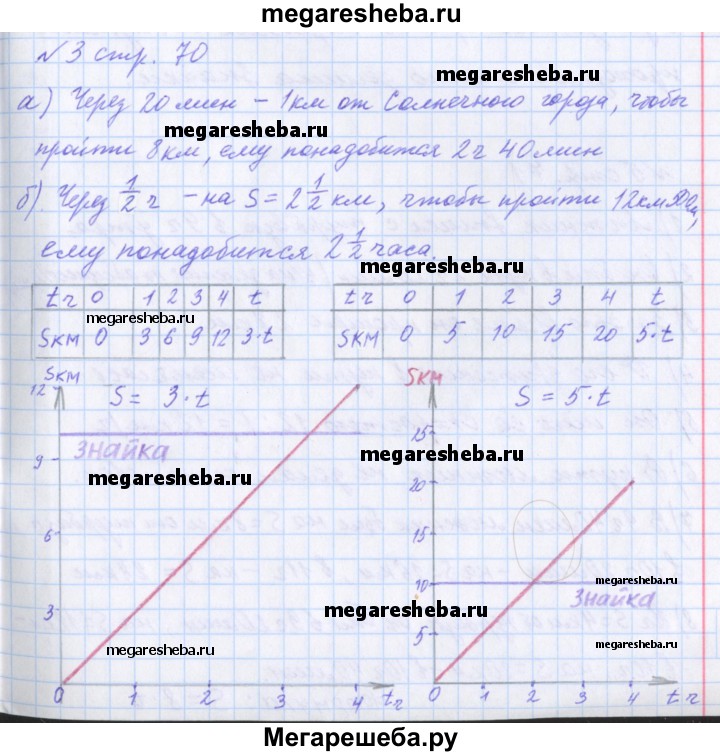 megaresheba.ru
№3 стр. 70
megaresheba.ru
а) Через 20 мин – 1 км от Солнечного города, чтобы
megaresheba.ru
пройти 8 км, ему понадобится 2 ч 40 мин
б). Через 1/2 ч – на S = 2 1/2 км, чтобы пройти 12 км
ему понадобится 2 1/2 часа.
megaresheba.ru
t ч 0 1 2 3 4 t
S км 0 3 6 9 12 3·t
megaresheba.ru
t ч 0 1 2 3 4 t
S км 0 5 10 15 20 5·t
S км
12
S = 3·t
Знайка
9
6
3
0 1 2 3 4 t ч
megaresheba.ru
megaresheba.ru
megaresheba.ru
S км
S = 5·t
25
20
15
10
5
Знайка
0 1 2 3 4 t ч
megaresheba.ru
megaresheba.ru
megaresheba.ru
megaresheba.ru
Мегарешеба.ру